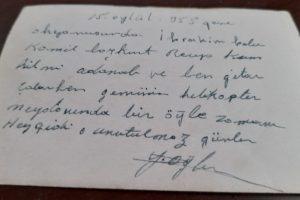 15 eylül . 955 gene
okyanusunda. İbrahim
Kamil bozkurt Recep Kam
Hilmi adanalı ve ben gitar
Çalarken geminin helikopter
meydanında bir öğle zamanı
Hey gidi o unutulmaz günler